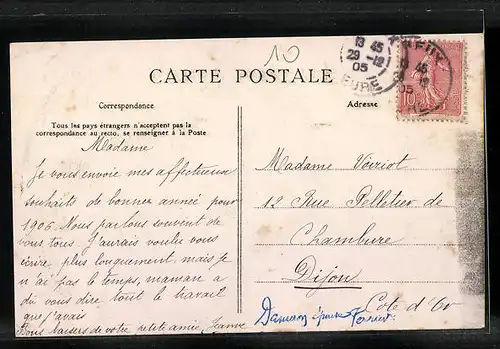 10
13 45
29 -12
05
EURE
CARTE POSTALE
Correspondance
Adresse
Tous les pays étrangers n'acceptent pas la
correspondance au recto, se renseigner à la Poste
Madame
Je vous envoie mes affectueux
souhaits de bonne année pour
1906. Nous parlons souvent de
vous tous. J'aurais voulu vous
écrire plus longuement, mais je
n'ai pas le temps, maman a
dû vous dire tout le travail
que j'avais
Bons baisers de votre petite amie, Jeanne
Madame Voiriot
12 Rue Pelletier de
Chambure
Dijon
Côte d'Or
épouse Voiriot